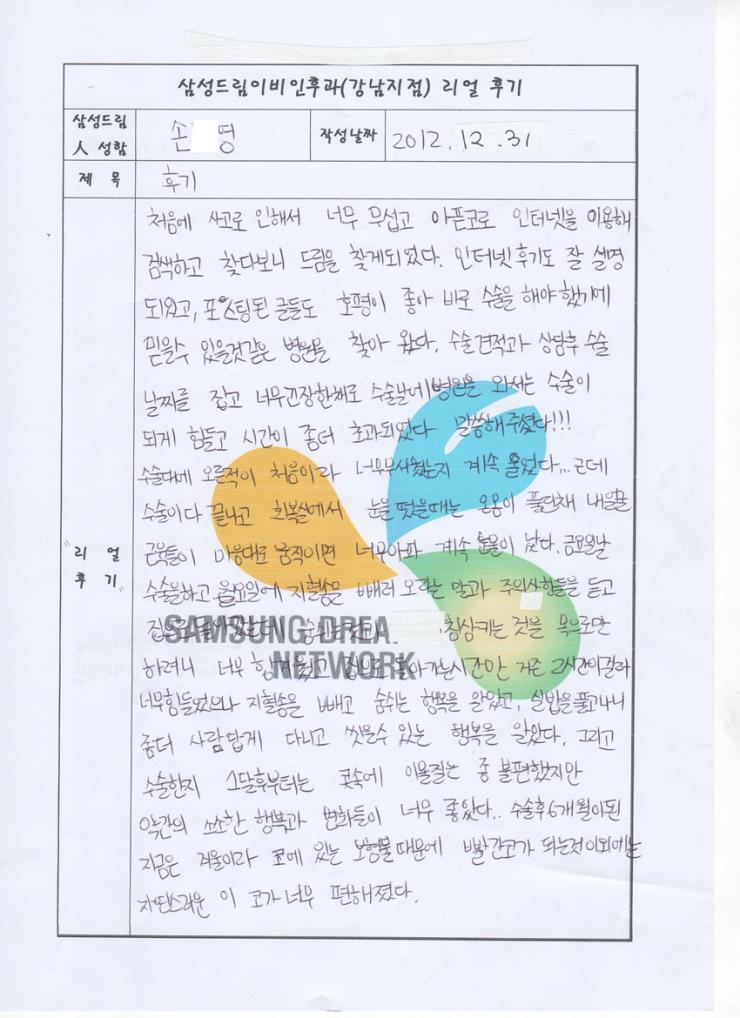 삼성드림이비인후과(강남지점) 리얼 후기
삼성드림 人 성함
손 영
작성날짜
2012. 12. 31
제 목
후기
리 얼 후 기
처음에 사고로 인해서 너무 무섭고 아픈코로 인터넷을 이용해
검색하고 찾다보니 드림을 찾게되었다. 인터넷후기도 잘 설명
되있고, 포스팅된 글들도 호평이 좋아 바로 수술을 해야했기에
믿을수 있을것같은 병원을 찾아 왔다. 수술견적과 상담후 수술
날짜를 잡고 너무긴장한채로 수술날에 병원을 와서는 수술이
되게 힘들고 시간이 좀더 초과되었다 말씀해주셨다!!!
수술대에 오른적이 처음이라 너무무서웠는지 계속 울었다... 근데
수술이 다 끝나고 회복실에서 눈을 떴을때는 온몸이 풀린채 내얼굴
근육들이 마음대로 움직이면 너무아파 계속 눈물이 났다. 금요일날
수술을하고 월요일에 지혈솜을 빼러 오라는 말과 주의사항들을 듣고
SAMSUNG DREA.
NETWORK
너무 힘 2시간이걸려
너무힘들었으나 지혈솜을 빼고 숨쉬는 행복을 알았고, 실밥을풀고나니
좀더 사람답게 다니고 씻을수 있는 행복을 알았다. 그리고
수술한지 1달후부터는 콧속에 이물질은 좀 불편했지만
약간의 쏘쏘한 행복과 변화들이 너무 좋았다.. 수술후 6개월이된
지금은 겨울이라 코에 있는 보형물때문에 빨간코가 되는것이외에는
자연스러운 이 코가 너무 편해졌다.